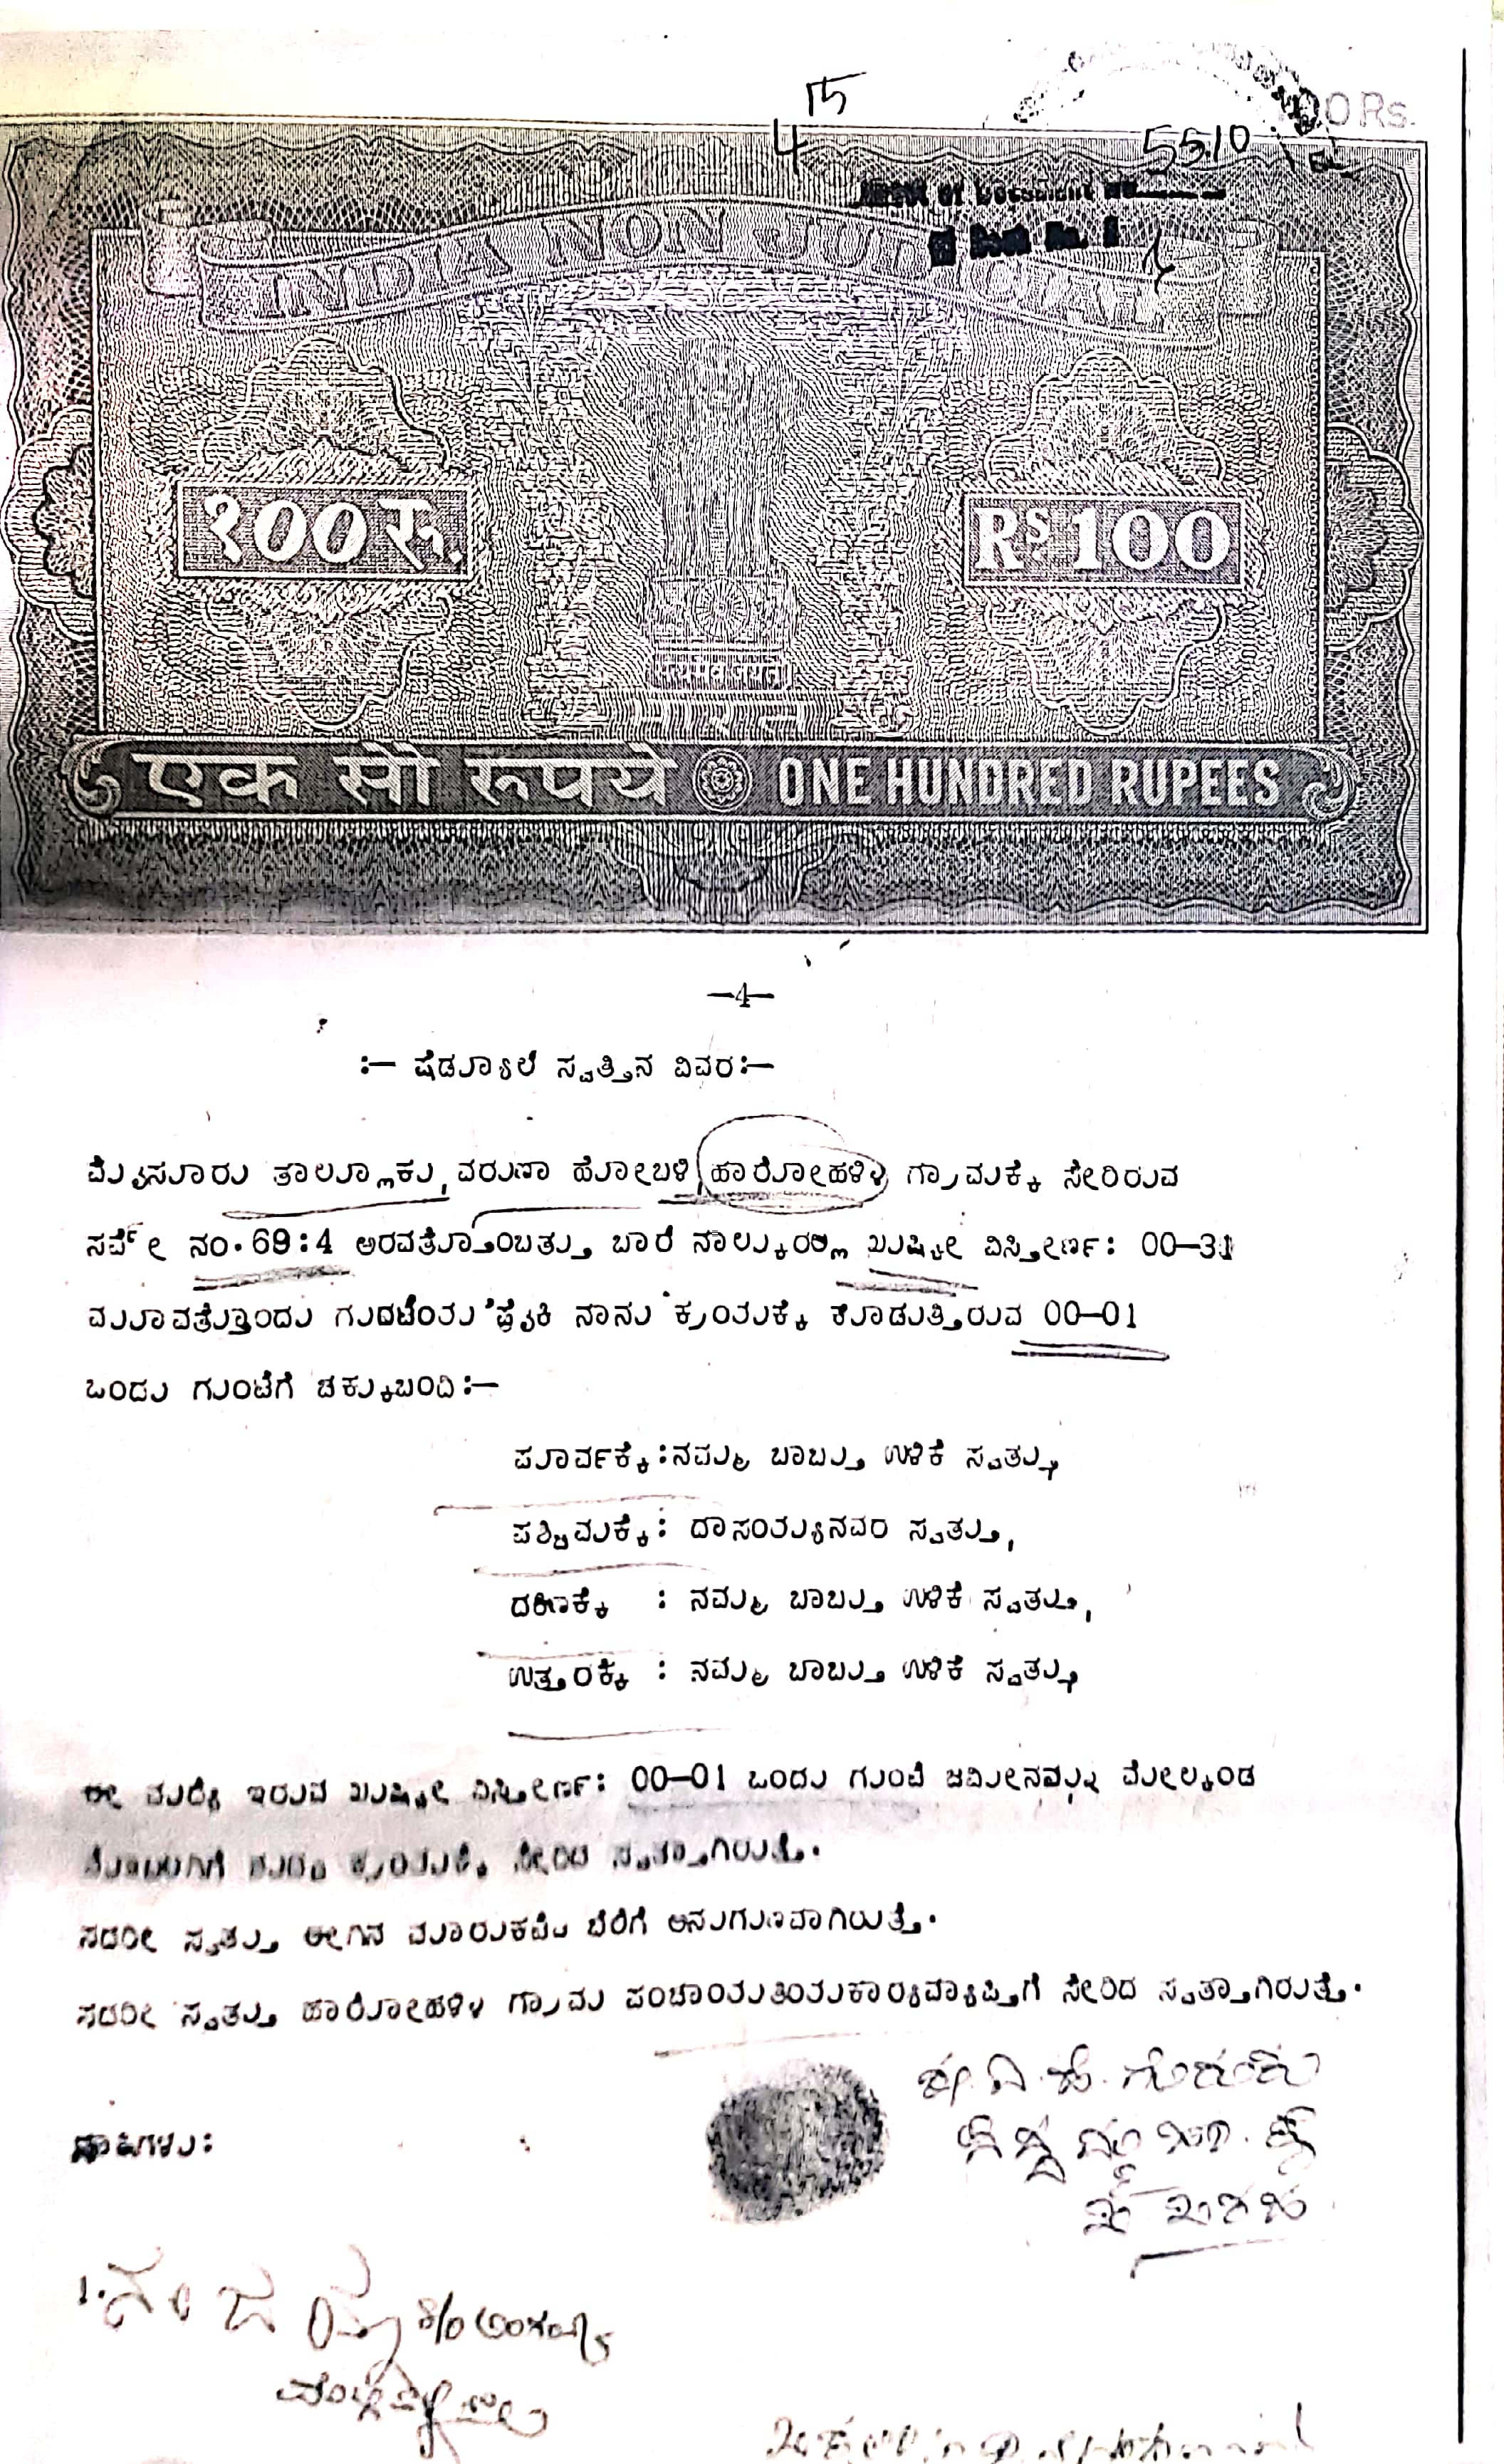 4 th
100 Rs.
5510
Sheet of Document No.
of Book No. 1
INDIA NON JUDICIAL
१०० रु.
Rs 100
सत्यमेव जयते
भारत
एक सौ रुपये ONE HUNDRED RUPEES
-4-
:- ಷೆಡ್ಯೂಲೆ ಸ್ವತ್ತಿನ ವಿವರ:-
ಮೈಸೂರು ತಾಲ್ಲೂಕು, ವರುಣಾ ಹೋಬಳಿ, ಹಾರೋಹಳ್ಳಿ ಗ್ರಾಮಕ್ಕೆ ಸೇರಿರುವ
ಸರ್ವೇ ನಂ. 69:4 ಅರವತ್ತೊಂಬತ್ತು ಬಾರೆ ನಾಲ್ಕುರಲ್ಲಿ ಖುಷ್ಕೀ ವಿಸ್ತೀರ್ಣ: 00-31
ಮೂವತ್ತೊಂದು ಗುಂಟೆಯ ಪೈಕಿ ನಾನು ಕ್ರಯಕ್ಕೆ ಕೊಡುತ್ತಿರುವ 00-01
ಒಂದು ಗುಂಟೆಗೆ ಚಕ್ಕುಬಂದಿ:-
ಪೂರ್ವಕ್ಕೆ : ನಮ್ಮ ಬಾಬ್ತು ಉಳಿಕೆ ಸ್ವತ್ತು,
ಪಶ್ಚಿಮಕ್ಕೆ : ದಾಸಯ್ಯನವರ ಸ್ವತ್ತು,
ದಕ್ಷಿಣಕ್ಕೆ : ನಮ್ಮ ಬಾಬ್ತು ಉಳಿಕೆ ಸ್ವತ್ತು,
ಉತ್ತರಕ್ಕೆ : ನಮ್ಮ ಬಾಬ್ತು ಉಳಿಕೆ ಸ್ವತ್ತು,
ಈ ಮಧ್ಯೆ ಇರುವ ಖುಷ್ಕೀ ವಿಸ್ತೀರ್ಣ: 00-01 ಒಂದು ಗುಂಟೆ ಜಮೀನನ್ನು ಮೇಲ್ಕಂಡ
ಕ್ರಯಕ್ಕೆ ಸೇರಿದ ಸ್ವತ್ತಾಗಿರುತ್ತೆ.
ಸದರೀ ಸ್ವತ್ತು ಈಗಿನ ಮಾರುಕಟ್ಟೆ ಬೆಲೆಗೆ ಅನುಗುಣವಾಗಿರುತ್ತೆ.
ಸದರೀ ಸ್ವತ್ತು ಹಾರೋಹಳ್ಳಿ ಗ್ರಾಮ ಪಂಚಾಯಿತಿಯ ಕಾರ್ಯವ್ಯಾಪ್ತಿಗೆ ಸೇರಿದ ಸ್ವತ್ತಾಗಿರುತ್ತೆ.
ಸಾಕ್ಷಿಗಳು:
1.
S/o